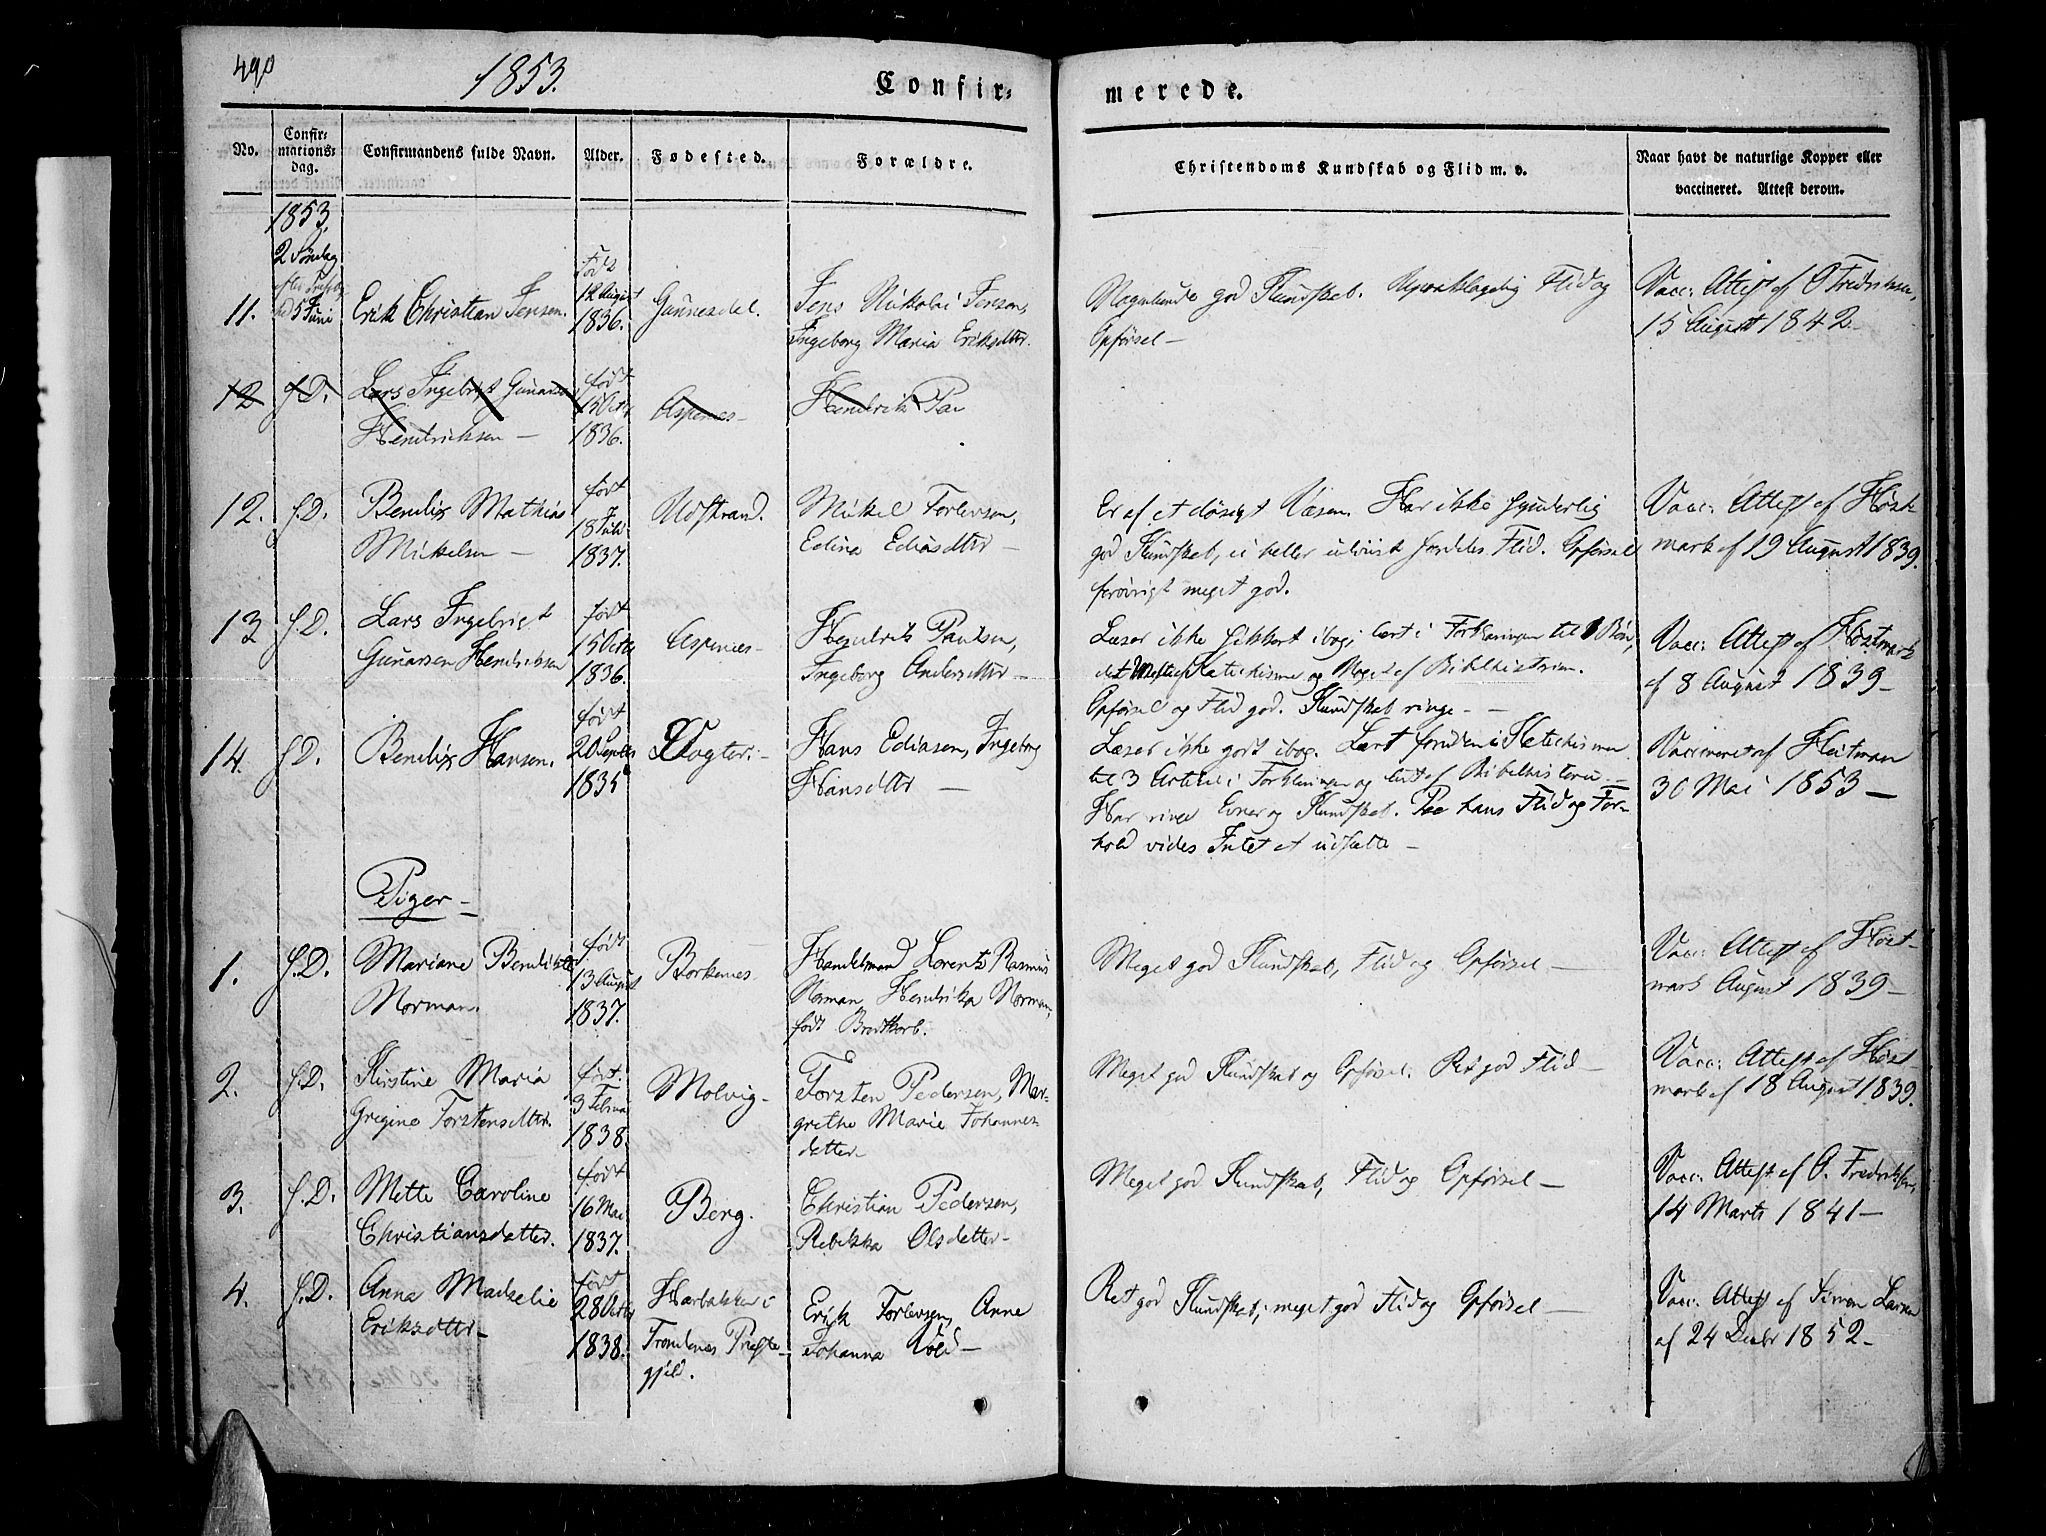 490
1853.
Confir-
merede.
No.
Confir-
mations-
dag.
Confirmandens fulde Navn.
Alder.
Fødested.
Forældre.
Christendoms Kundskab og Flid m. v.
Naar havt de naturlige Kopper eller
vaccineret. Attest derom.
1853.
2 Søndag
5 Juni
11.
Erik Christian Jensen.
Født
12 August
1836.
Gunnesdal.
Jens Nikolai Jensen,
Ingeborg Maria Eriksdtr.
Nogenlunde god Kundskab. Upaaklagelig Flid og
Opførsel —
Vacc: Attest af O Fredriksen,
15 August 1842 —
12
f. D.
Lars Ingebrigt Gunarsen
Hendriksen —
født
15 Octbr
1836.
Aspenes —
Hendrik Pau
12.
f. D.
Bendix Mathias
Mikkelsen —
født
18 Juli
1837.
Udstrand.
Mikkel Torlevsen,
Edina Ediasdttr —
Er af et døsigt Væsen. Har ikke synderlig
god Kundskab, ei heller udviist særdeles Flid. Opførsel
forøvrigt meget god.
Vacc: Attest af Høst-
mark af 19 August 1839.
13
f. D.
Lars Ingebrigt
Gunarsen Hendriksen
født
15 Octbr
1836.
Aspenes —
Hendrik Paulsen,
Ingeborg Andersdttr —
Læser ikke sikkert ibog; lært i Forklaringen til 1 Bøn,
det Meste af Katekismen og Noget af Bibelhistorien.
Opførsel og Flid god. Kundskab ringe — —
Vacc: Attest af Høstmark
af 8 August 1839 —
14.
f. D.
Bendix Hansen.
født
20 Septbr
1835
Vogter: —
Hans Ediasen, Ingeborg
Hansdttr —
Læser ikke godt ibog. Lært foruden Katekismen
til 3 Artikel i Forklaringen og lidt af Bibelhistorien —
Har ringe Evner og Kundskab. Paa hans Flid og For-
hold vides Intet at udsætte —
Vaccineret af Heitman
30 Mai 1853 —
Piger —
1.
f. D.
Mariane Bendikte
Norman.
født
13 August
1837.
Borkenes —
Handelsmand Lorentz Rasmus
Norman, Hendrika Norman,
født Brodtkorb.
Meget god Kundskab, Flid og Opførsel —
Vacc: Attest af Høst-
mark August 1839 —
2.
f. D.
Kirstine Maria
Gregine Torstensdttr.
født
3 Februar
1838.
Molvig —
Torsten Pedersen, Mar-
grethe Marie Johannes-
datter
Meget god Kundskab og Opførsel. Ret god Flid —
Vacc: Attest af Høst-
mark af 18 August 1839.
3.
f. D.
Mette Caroline
Christiansdatter.
født
16 Mai
1837.
Berg.
Christian Pedersen,
Rebekka Olsdatter —
Meget god Kundskab, Flid og Opførsel —
Vacc: Attest af O. Fredriksen,
14 Marts 1841 —
4.
f. D.
Anna Markelie
Eriksdttr —
født
28 Octbr
1838.
Harbakken i
Trondenes Præste-
gjeld.
Erik Torlevsen, Anne
Johanna Void —
Ret god Kundskab, meget god Flid og Opførsel —
Vacc: Attest af Simon Larsen
af 24 Decbr 1852 —